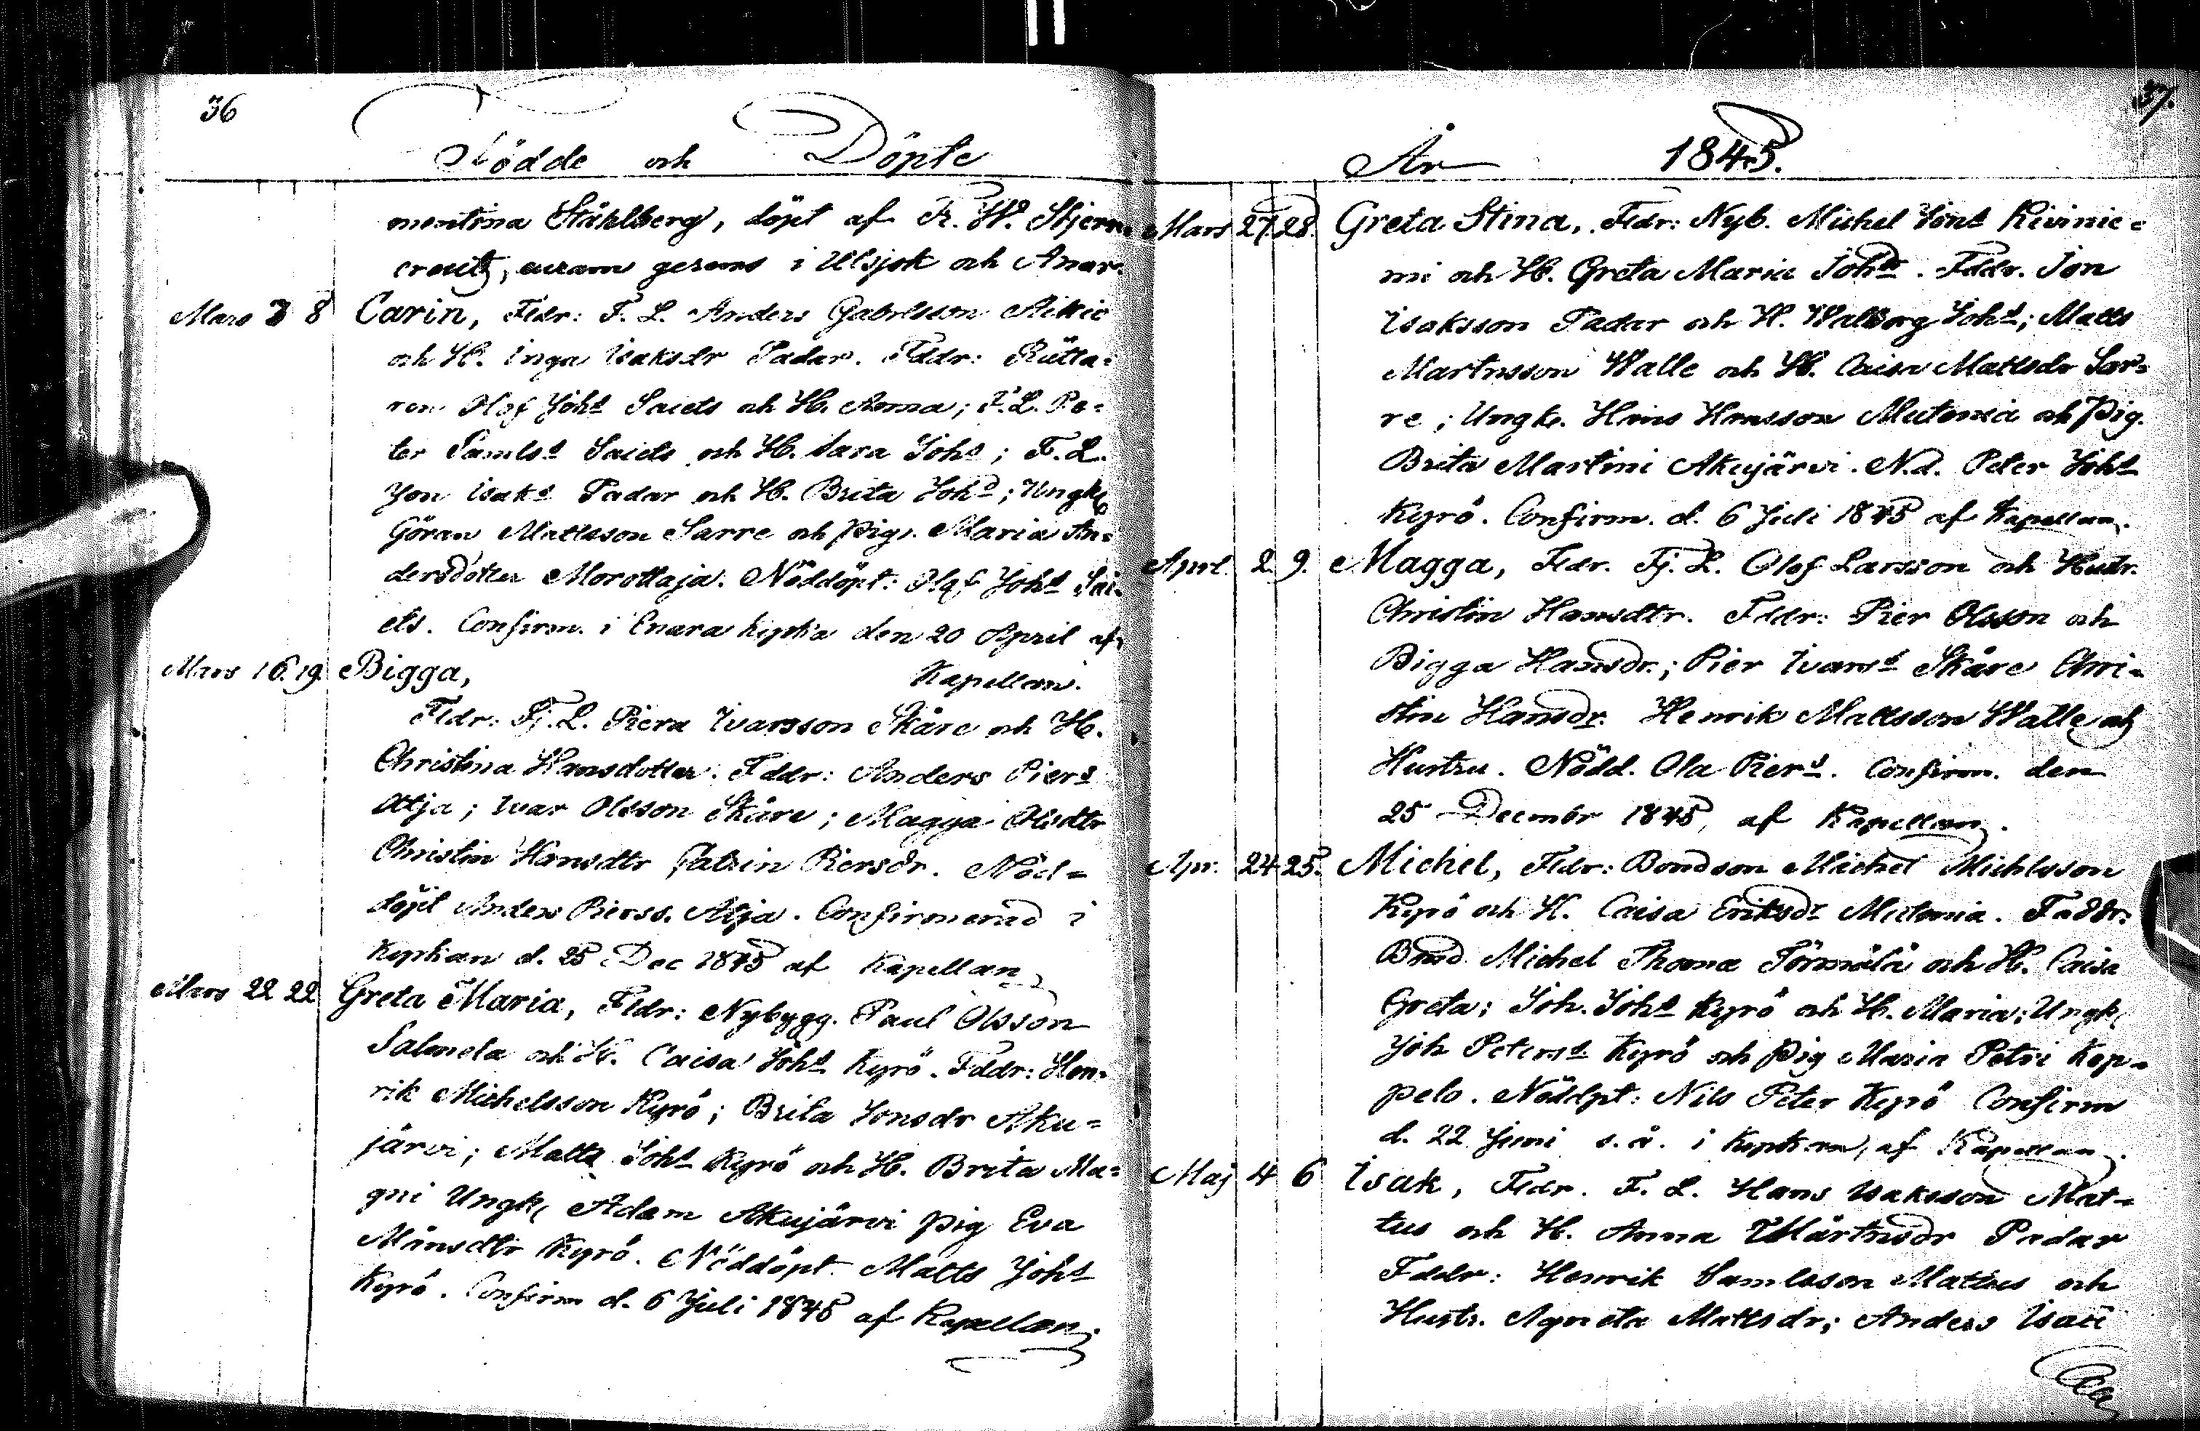 36
Födde och Döpte
mentina Ståhlberg, döpt af Fr. W. Stjern-
creutz, curam gerens i Utsjok och Anar.
Mars 3 8 Carin, Fldr: F. L. Anders Gabrlsson Aikio
och H. Inga Isaksdr Padar. Fddr:
ren Olof Johs Saiets och H. Anna; F. L. Pe=
ter Samls Saiets och H. Sara Johs; F. L.
Jon Isaks Padar och H. Brita Johs; Ungk.
Göran Mattsson Sarre och Pig. Maria An=
dersdotter Morottaja. Nöddöpt: Olof Johs Sai=
ets. Confirm. i Enara kyrka den 20 April af
Kapellan.
Mars 16 19 Bigga,
Fldr: Fj. L. Piera Ivarsson Skåre och H.
Christina Hansdotter. Fddr: Anders Piers
Atja; Ivar Olsson Skåre; Magga Olsdtr
Christin Hansdtr Catrin Piersdr. Nöd=
döpt Anders Pierss. Atja. Confirmerad i
Kyrkan d. 25 Dec 1845 af Kapellan
Mars 22 22 Greta Maria, Fldr: Nybygg. Paul Olsson
Salmela och H. Caisa Johs Kyrö. Fddr: Hen=
rik Michelsson Kyrö; Brita Jonsdr Aku=
järvi; Matts Johs Kyrö och H. Brita Ma=
gni Ungk. Adam Akujärvi Pig Eva
Månsdtr Kyrö. Nöddöpt Matts Johs
Kyrö. Confirm d. 6 Juli 1845 af Kapellan.
37.
År 1845.
Mars 27. 28. Greta Stina, Fldr: Nyb. Michel Jons Kivinie=
mi och H. Greta Maria Johs. Fddr. Jon
Isaksson Padar och H. Walborg Johs; Matts
Martnsson Walle och H. Caisa Mattsdr Sar=
re; Ungk. Hans Hansson Mutenia och Pig.
Brita Martini Akujärvi. N.d. Peter Johs
Kyrö. Confirm. d. 6 Juli 1845 af Kapellan.
Aprl. 2. 9. Magga, Fldr. Fj. L. Olof Larsson och Hustr.
Christin Hansdtr. Fddr: Pier Olsson och
Bigga Hansdr.; Pier Ivars Skåre Chri=
stin Hansdr. Henrik Mattsson Walle och
Hustru. Nödd. Ola Piers. Confirm. den
25 Decmbr 1845, af Kapellan.
Apr. 24 25. Michel, Fldr: Bondson Michel Michlsson
Kyrö och H. Caisa Eriksdr Mutenia. Faddr:
Bond Michel Thomæ Törmälä och H. Caisa
Greta; Joh. Johs Kyrö och H. Maria; Ungk.
Joh Peters Kyrö och Pig Maria Petri Kop=
pelo. Nöddpt: Nils Peter Kyrö Confirm
d. 22 Juni s. å. i Kyrkan, af Kapellan.
Maj 4 6 Isak, Fldr. F. L. Hans Isaksson Mat=
tus och H. Anna Mårtnsdr Padar
Fddr: Henrik Samlsson Mattus och
Hustr. Agneta Mattsdr; Anders Isaci